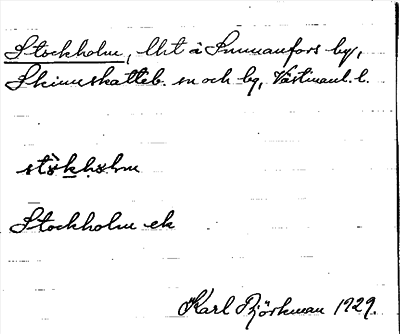 Stockholm, lht å Snmanfors by,
Skinnskatteb. sn och bg, Västmanl. l.
stòkholm
Stockholm ek
Karl Björkman 1929.